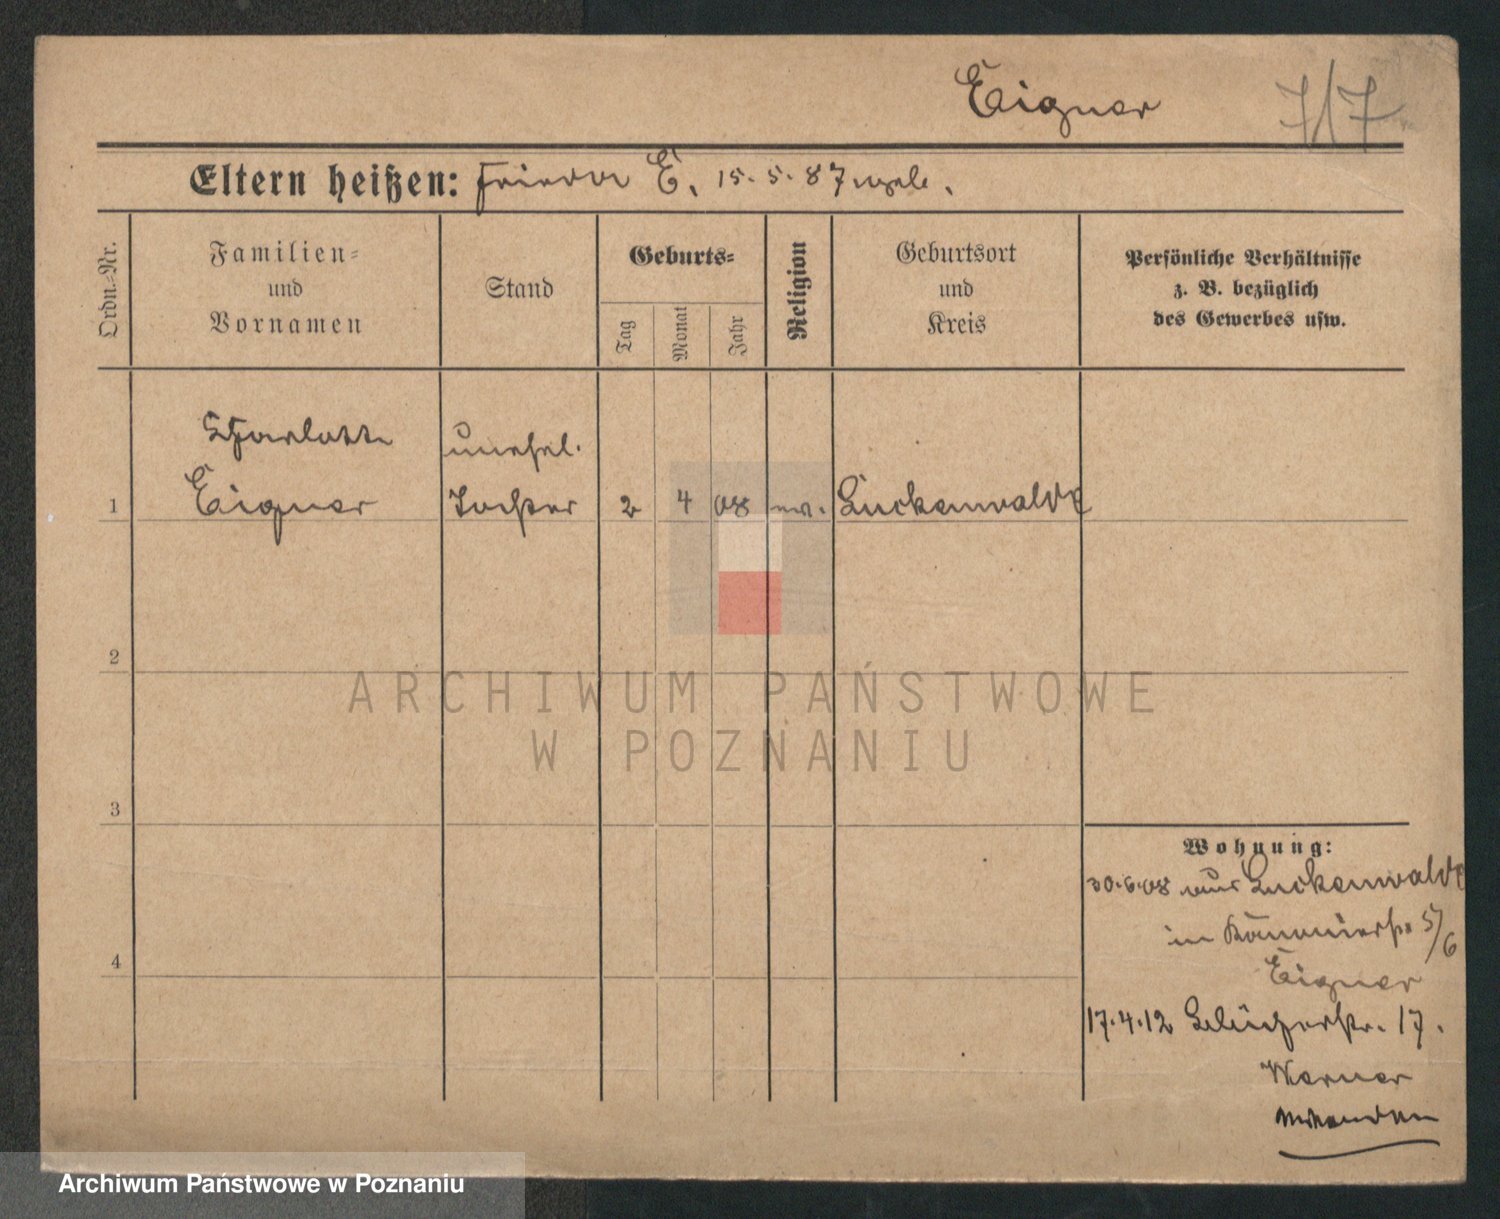 Eigner 717
Eltern heißen: Frieda E. 15.5.87
Ordn.-Nr.
Familien-
und
Vornamen
Stand
Geburts-
Tag
Monat
Jahr
Religion
Geburtsort
und
Kreis
Persönliche Verhältnisse
z. B. bezüglich
des Gewerbes usw.
Charlotte unehel.
1 Eigner Tochter 2 4 08 ev. Luckenwalde
2
3
4
Wohnung:
30.6.08 aus Luckenwalde
in 5/6
Eigner
17.4.12 Blücherstr. 17.
Werner
ARCHIWUM PAŃSTWOWE
W POZNANIU
Archiwum Państwowe w Poznaniu